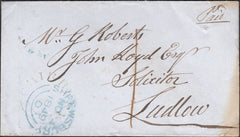 Paid
Mr. G Roberts
John Lloyd Esqr
Solicitor
Ludlow